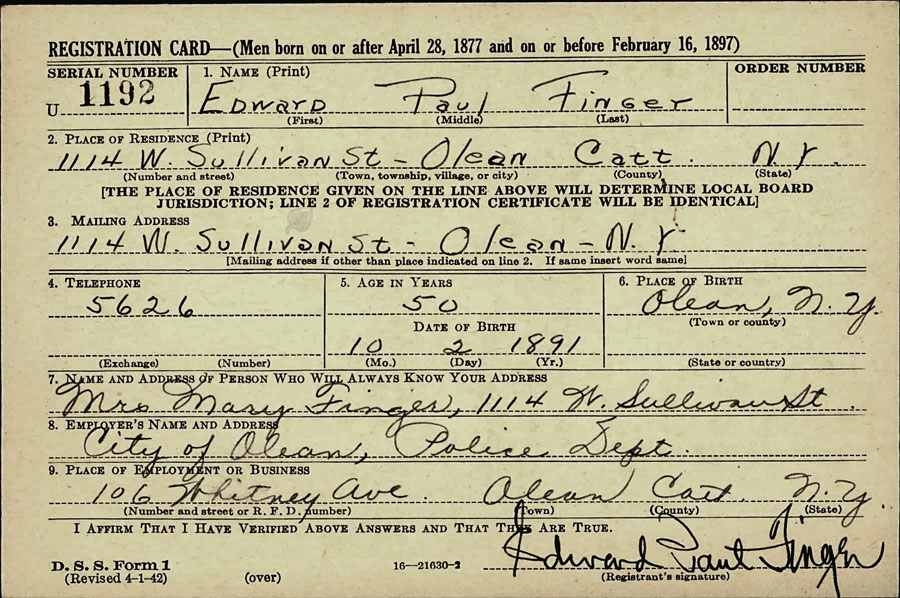 REGISTRATION CARD—(Men born on or after April 28, 1877 and on or before February 16, 1897)
SERIAL NUMBER 1. NAME (Print) ORDER NUMBER
U 1192 EDWARD Paul FINGER
(First) (Middle) (Last)
2. PLACE OF RESIDENCE (Print)
1114 W. Sullivan St - Olean Catt. N.Y.
(Number and street) (Town, township, village, or city) (County) (State)
[THE PLACE OF RESIDENCE GIVEN ON THE LINE ABOVE WILL DETERMINE LOCAL BOARD
JURISDICTION; LINE 2 OF REGISTRATION CERTIFICATE WILL BE IDENTICAL]
3. MAILING ADDRESS
1114 W. Sullivan St - Olean - N.Y
[Mailing address if other than place indicated on line 2. If same insert word same]
4. TELEPHONE 5. AGE IN YEARS 6. PLACE OF BIRTH
5626 50 Olean, N.Y.
(Town or county)
DATE OF BIRTH
10 2 1891
(Exchange) (Number) (Mo.) (Day) (Yr.) (State or country)
7. NAME AND ADDRESS OF PERSON WHO WILL ALWAYS KNOW YOUR ADDRESS
Mrs Mary Finger, 1114 W. Sullivan St.
8. EMPLOYER'S NAME AND ADDRESS
City of Olean, Police Dept.
9. PLACE OF EMPLOYMENT OR BUSINESS
106 Whitney Ave. Olean Catt. N.Y
(Number and street or R. F. D. number) (Town) (County) (State)
I AFFIRM THAT I HAVE VERIFIED ABOVE ANSWERS AND THAT THEY ARE TRUE.
Edward Paul Finger
D. S. S. Form 1 16—21630-2
(Revised 4-1-42) (over) (Registrant's signature)